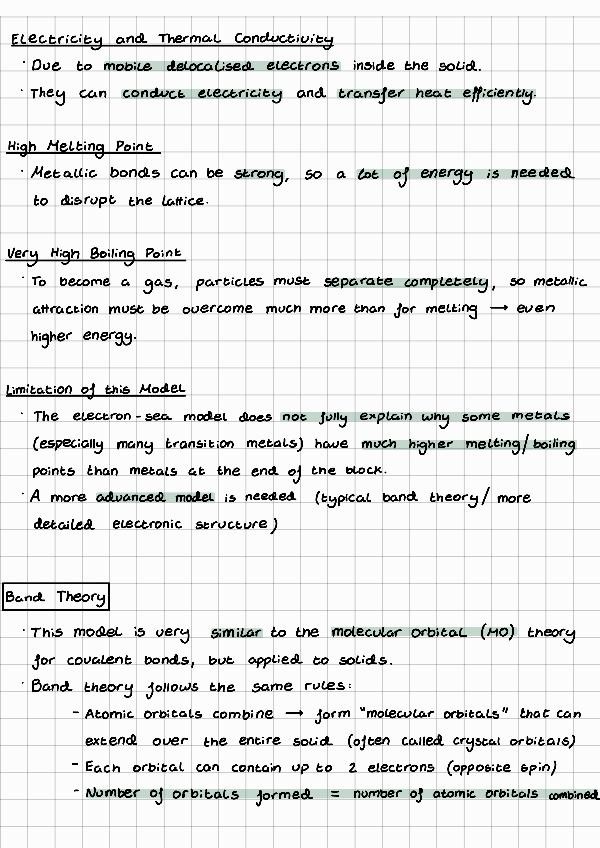 Electricity and Thermal Conductivity
· Due to mobile delocalised electrons inside the solid.
· They can conduct electricity and transfer heat efficiently.
High Melting Point
· Metallic bonds can be strong, so a lot of energy is needed
to disrupt the lattice.
Very High Boiling Point
· To become a gas, particles must separate completely, so metallic
attraction must be overcome much more than for melting → even
higher energy.
Limitation of this Model
· The electron-sea model does not fully explain why some metals
(especially many transition metals) have much higher melting/boiling
points than metals at the end of the block.
· A more advanced model is needed (typical band theory/more
detailed electronic structure)
Band Theory
· This model is very similar to the molecular orbital (MO) theory
for covalent bonds, but applied to solids.
· Band theory follows the same rules:
- Atomic orbitals combine → form "molecular orbitals" that can
extend over the entire solid (often called crystal orbitals)
- Each orbital can contain up to 2 electrons (opposite spin)
- Number of orbitals formed = number of atomic orbitals combined